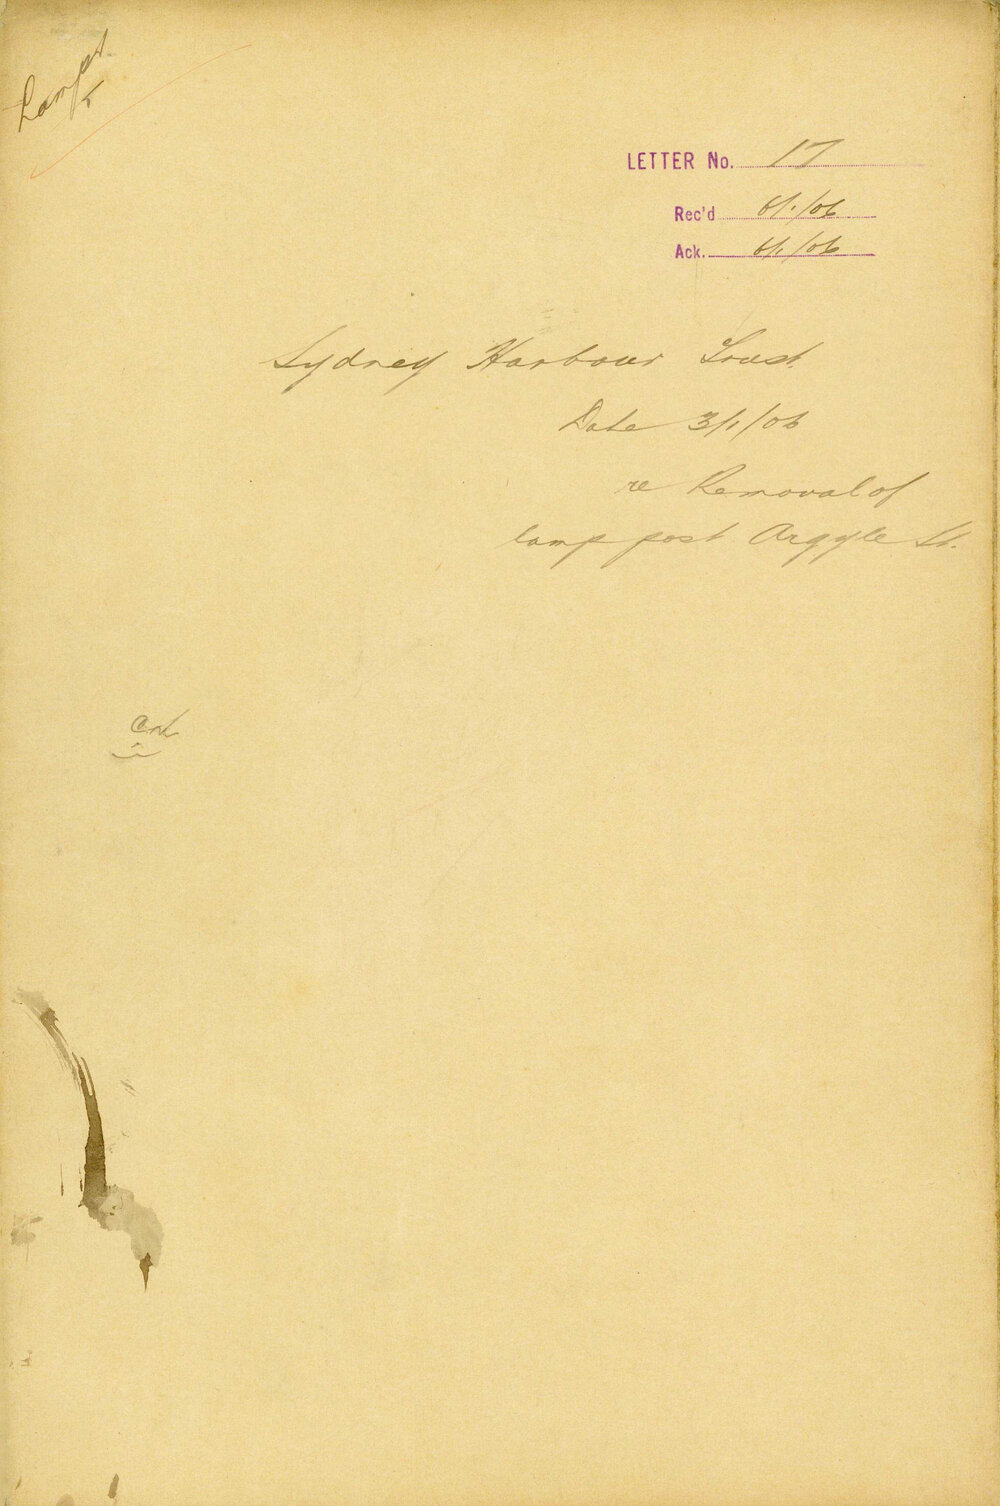 Lamps
LETTER No. 17
Rec'd 6/1/06
Ack. 6/1/06
Sydney Harbour Trust
Date 3/1/06
re Removal of
lamp post Argyle St.